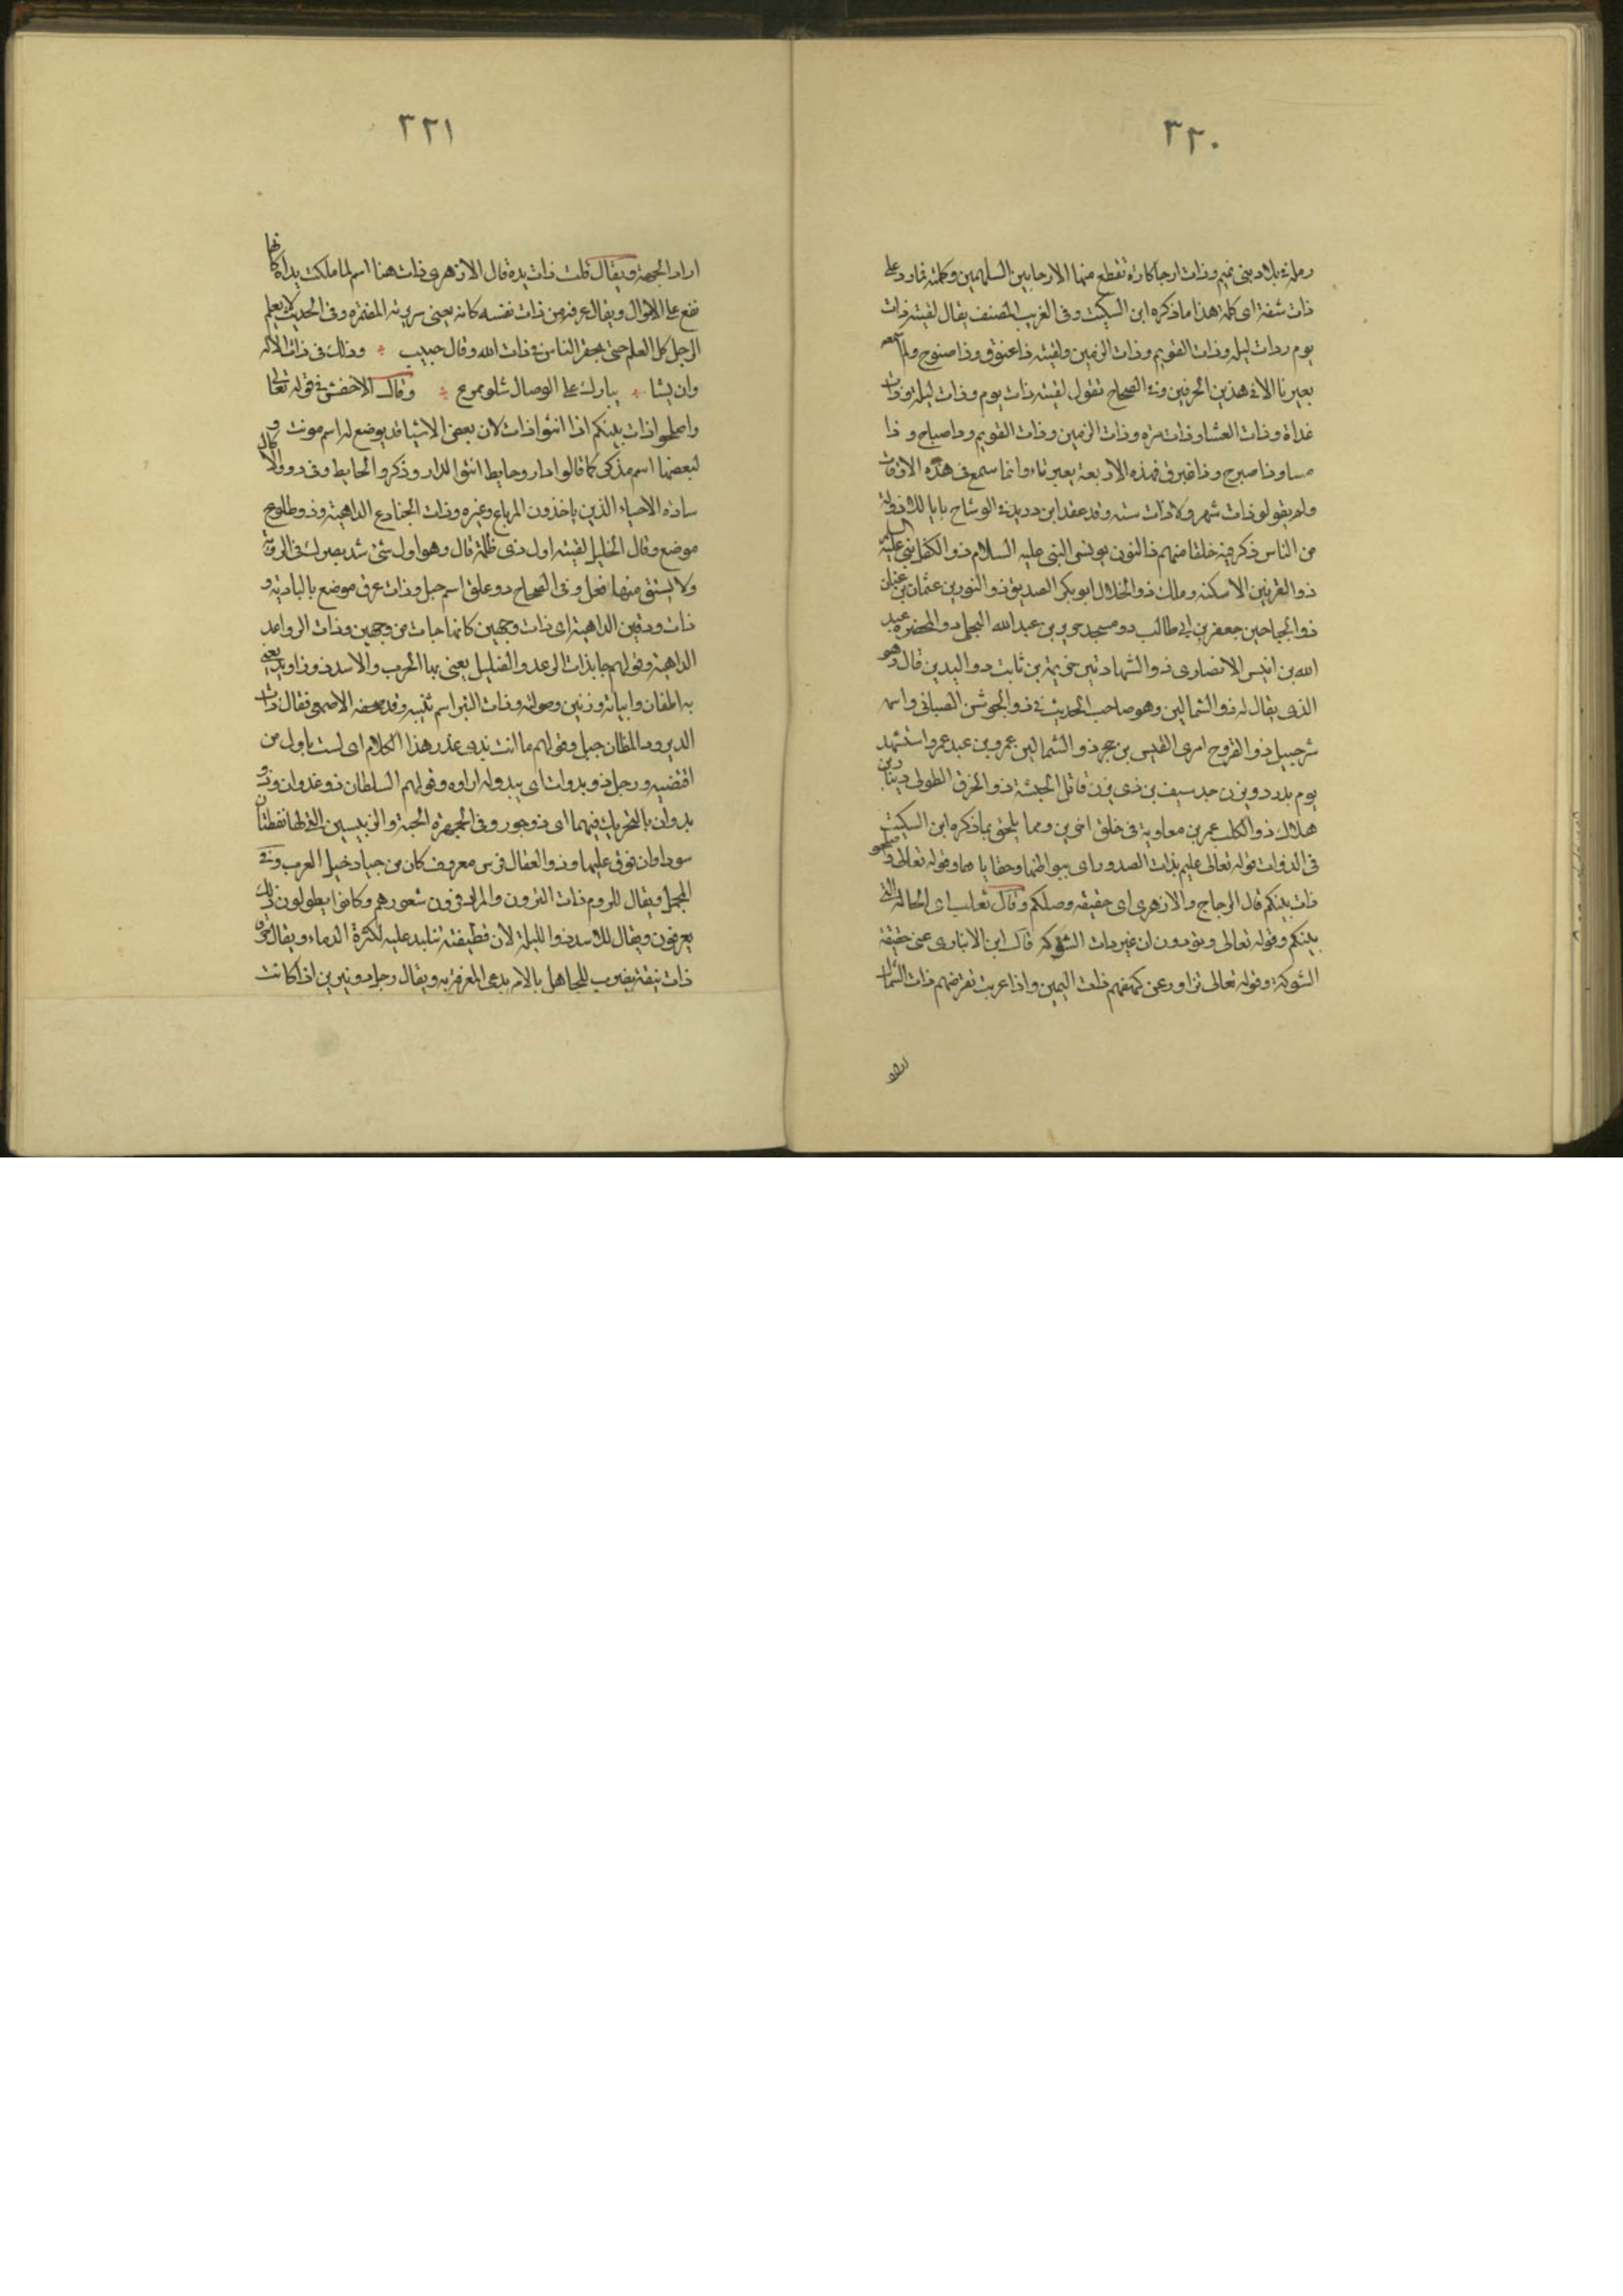 ٣٢٠
رملة بلاد بنى تميم وذات ارجا كارة تقطع منها الارحا بين السلهمين وكلمته فما رد على
ذات شفة اى كلمة هذا ما ذكره ابن السكيت وفى الغريب المصنف يقال لقيته ذات
يوم وذات ليلة وذات العويم وذات الزمين ولقيته ذا غبوق وذا صبوح ولم اسمعه
بغير تا الا فى هذين الحرفين وفى الصحاح تقول لقيته ذات يوم وذات ليلة وذات
غداة وذات العشا وذات مرة وذات الزمين وذات العويم وذا صباح و ذا
مسا وذا صبوح وذا غبوق فهذه الاربعة بغير تاء وانما سمع فى هذه الاوقات
ولم يقولو ذات شهر ولا ذات سنة وقد عقد ابن دريد فى الوشاح بابا للاذواء
من الناس ذكر فيه خلقا منهم ذا النون يونس النبى عليه السلام ذو الكفل نبى عليه السلام
ذو القرنين الاسكندر وملك ذو الخلال ابوبكر الصديق ذو النورين عثمان بن عفان
ذو الجناحين جعفر بن ابى طالب ذو مسجد جرير بن عبدالله البجلى ذو المخصرة عبد
الله بن انيس الانصارى ذو الشهادتين خزيمة بن ثابت ذو اليدين قال وهو
الذى يقال له ذو الشمالين وهو صاحب الحديث فى ذو الجوشن الضبابى واسمه
شرحبيل ذو القروح امرى القيس بن حجر ذو الشمالين عمرو بن عبد عمرو استشهد
يوم بدر ذو يزن جد سيف بن ذى يزن قاتل الحبشة ذو الخرق الطهوى دينار بن
هلال ذو الكلب عمر بن معاوية فى خلق اخرين ومما يلحق بما ذكره ابن السكيت
فى الذوات قوله تعالى عليم بذات الصدور اى ببواطنها وخفاياها وقوله تعالى واصلحو
ذات بينكم قال الزجاج والازهرى اى حقيقة وصلكم وقال ثعلب اى الحالة التى
بينكم وقوله تعالى وتودون ان غير ذات الشوكة قال ابن الانبارى عنى حقيقة
الشوكة وقوله تعالى تزاور عن كهفهم ذات اليمين واذا غربت تقرضهم ذات الشمال
٣٢١
اراد الجهة ويقال قلت ذات يده قال الازهرى ذات هنا اسم لما ملكت يداه كانها
تقع على الاموال ويقال عرفه من ذات نفسه كانه يعنى سريرته المضمرة وفى الحديث لا يعلم
الرجل كل العلم حتى يحقر الناس فى ذات الله وقال حبيب وذلك فى ذات الاله
وان يشا يبارك على اوصال شلو ممزع وقال الاخفش فى قوله تعالى
واصلحو اذات بينكم اذا انثو اذات لان بعض الاشيا قد يوضع له اسم مونث و
لبعضها اسم مذكر كما قالوا دار وحايط انثوا الدار وذكروا الحايط وفى ذوو الاكال
سادة الاحياء الذين ياخذون المرباع وغيره وذات الجنادع الداهية وذو طلوح
موضع وقال الخليل لقيته اول ذى ظلمة قال وهو اول شئ شد بصرك فى الروية
ولا يشتق منها فعل وفى الصحاح ذو علق اسم جبل وذات عرق موضع بالبادية و
ذات ودقين الداهية اى ذات وجهين كانما جات من وجهين وذات الرواعد
الداهية وقولهم جا بذات الرعد والصليل يعنى بها الحرب والاسد ذو زوايد يعنى
به وصولته وذات اسم ثنية وقد صحفه الاصمعى فقال ذات
الدير وذو المطان جبل وقولهم ما انت بذى عذر هذا الكلام اى لست باول من
اقتضبه ورجل ذو بدوات اى يبدو له اراوه وقولهم السلطان ذو عدوان وذو
بدوان بالتحريك فيهما اى ذو جور وفى الجمهرة الحية ذو الزبيبتين التى لها نقطتان
سوداوان فوق عينيها وذو العقال فرس معروف كان من جياد خيل العرب وفى
المجمل ويقال للروم ذات القرون والمراد قرون شعورهم وكانوا يطولون ذلك
يعرفون ويقال للاسد ذوا اللبدة لان قطيفته تتلبد عليه لكثرة الدماء ويقال خرقاء
ذات نيقة يضرب للجاهل بالامر يدعى المعرفة به ويقال رجل ذو نيرين اذا كانت